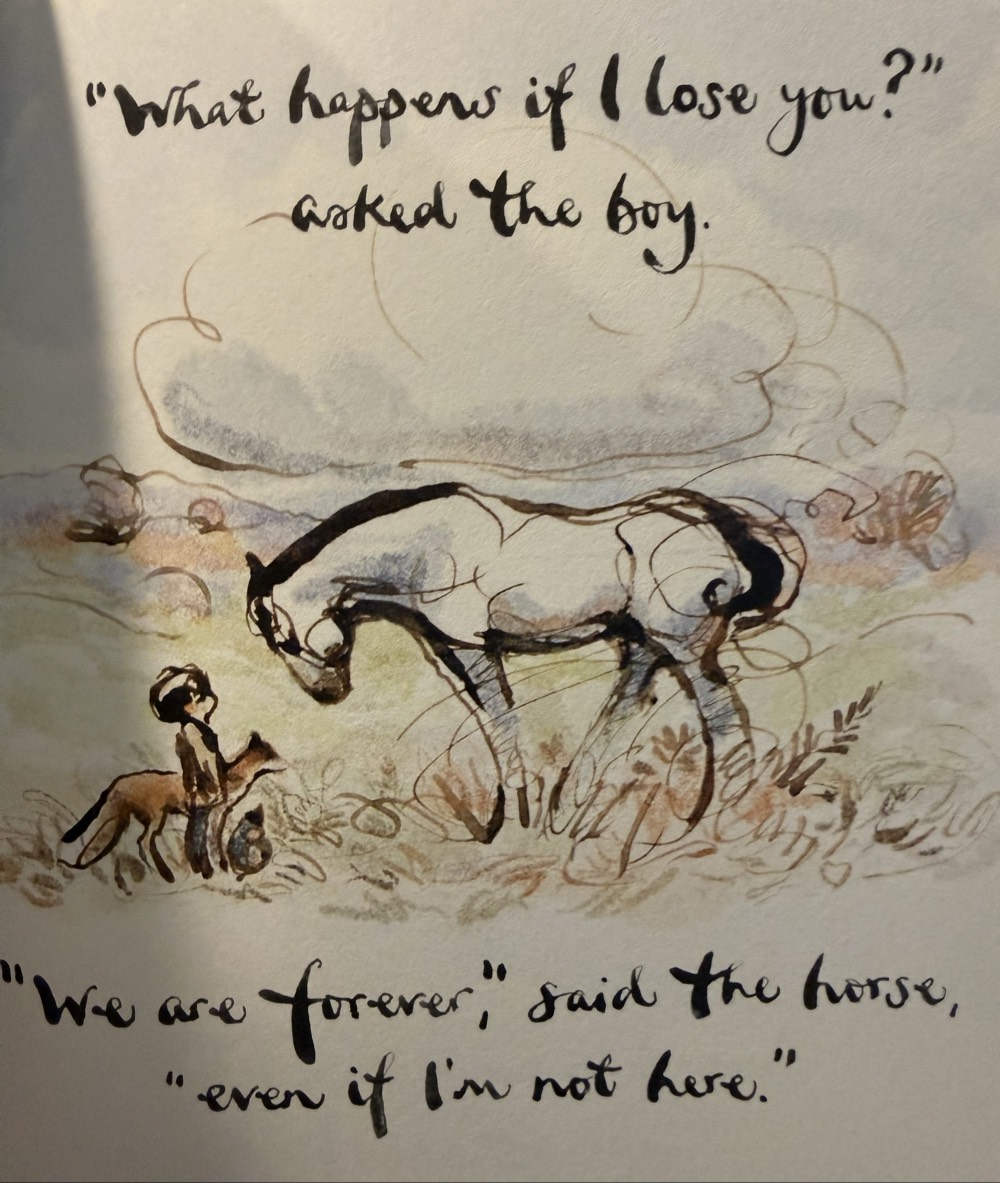 "What happens if I lose you?"
asked the boy.
"We are forever," said the horse,
"even if I'm not here."